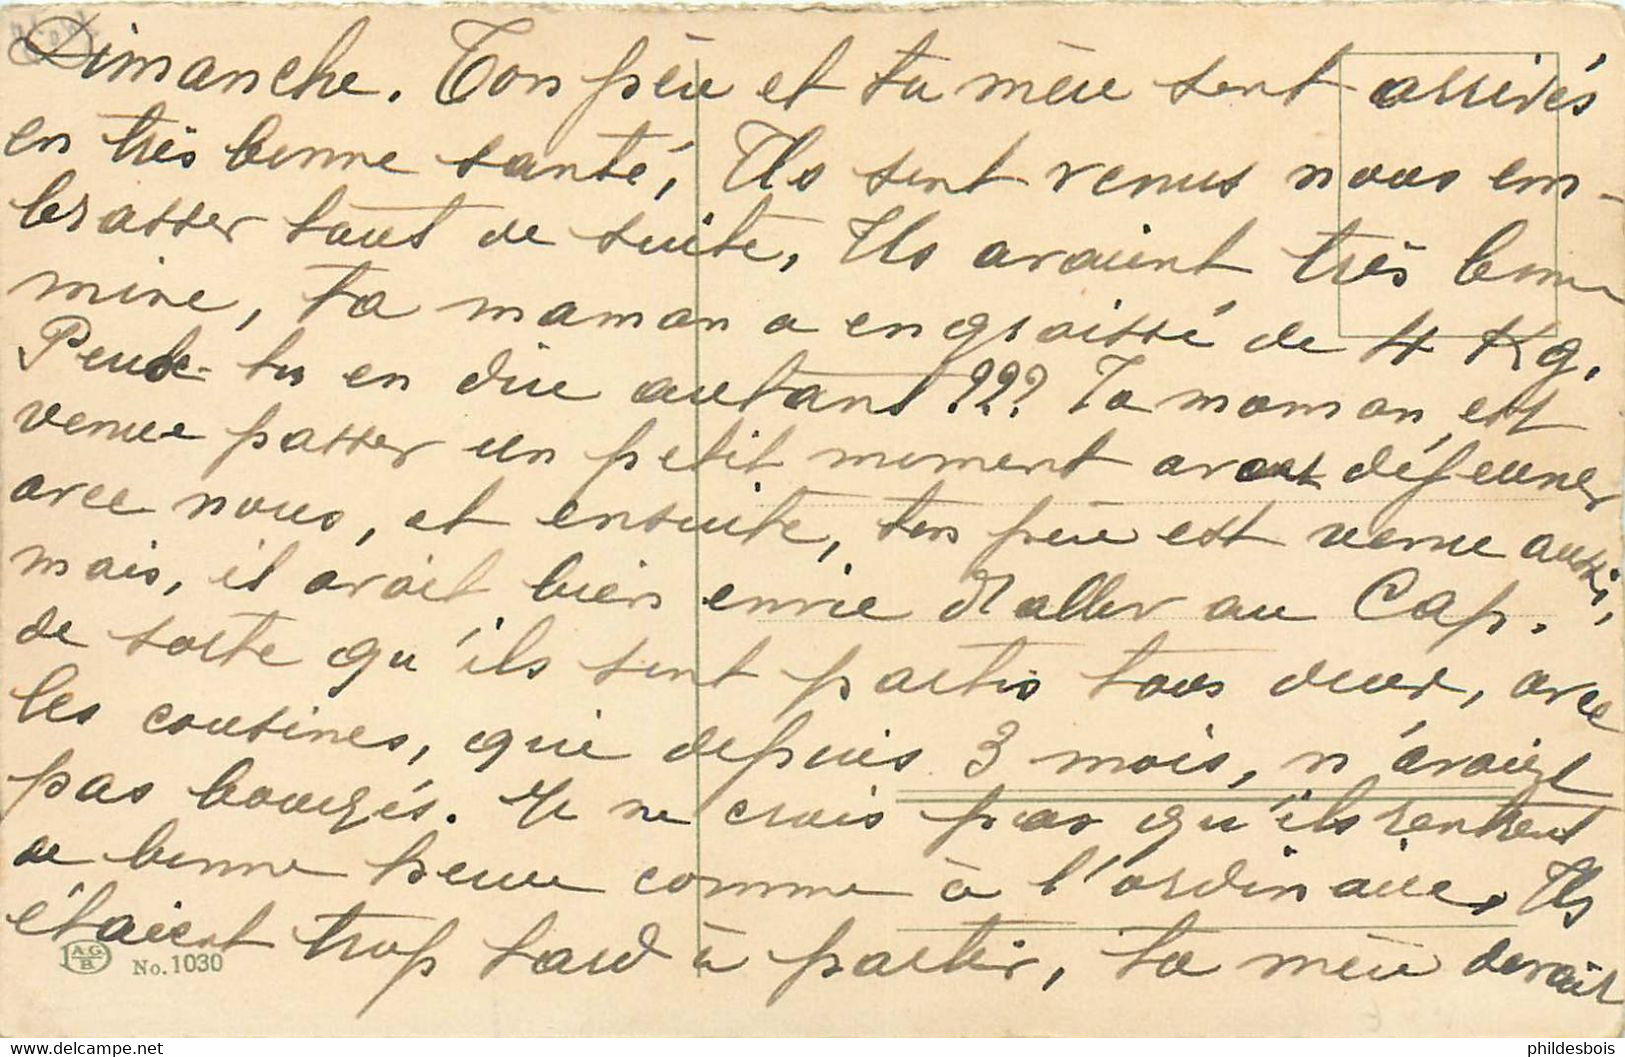 Dimanche. Ton père et ta mère sont arrivés
en très bonne santé, Ils sont venus nous em-
brasser tout de suite, Ils avaient très bonne
mine, ta maman a engraissé de 4 Kg.
Peux-tu en dire autant ??? Ta maman, est
venue passer un petit moment avant déjeuner
avec nous, et ensuite, ton père est venu aussi,
mais, il avait bien envie d'aller au Cap.
de sorte qu'ils sont partis tous deux, avec
les cousines, qui depuis 3 mois, n'avaient
pas bougés. Je ne crois pas qu'ils rentrent
de bonne heure comme à l'ordinaire, Ils
étaient trop tard à partir, ta mère devait
A.G.
B.
No. 1030
phildesbois